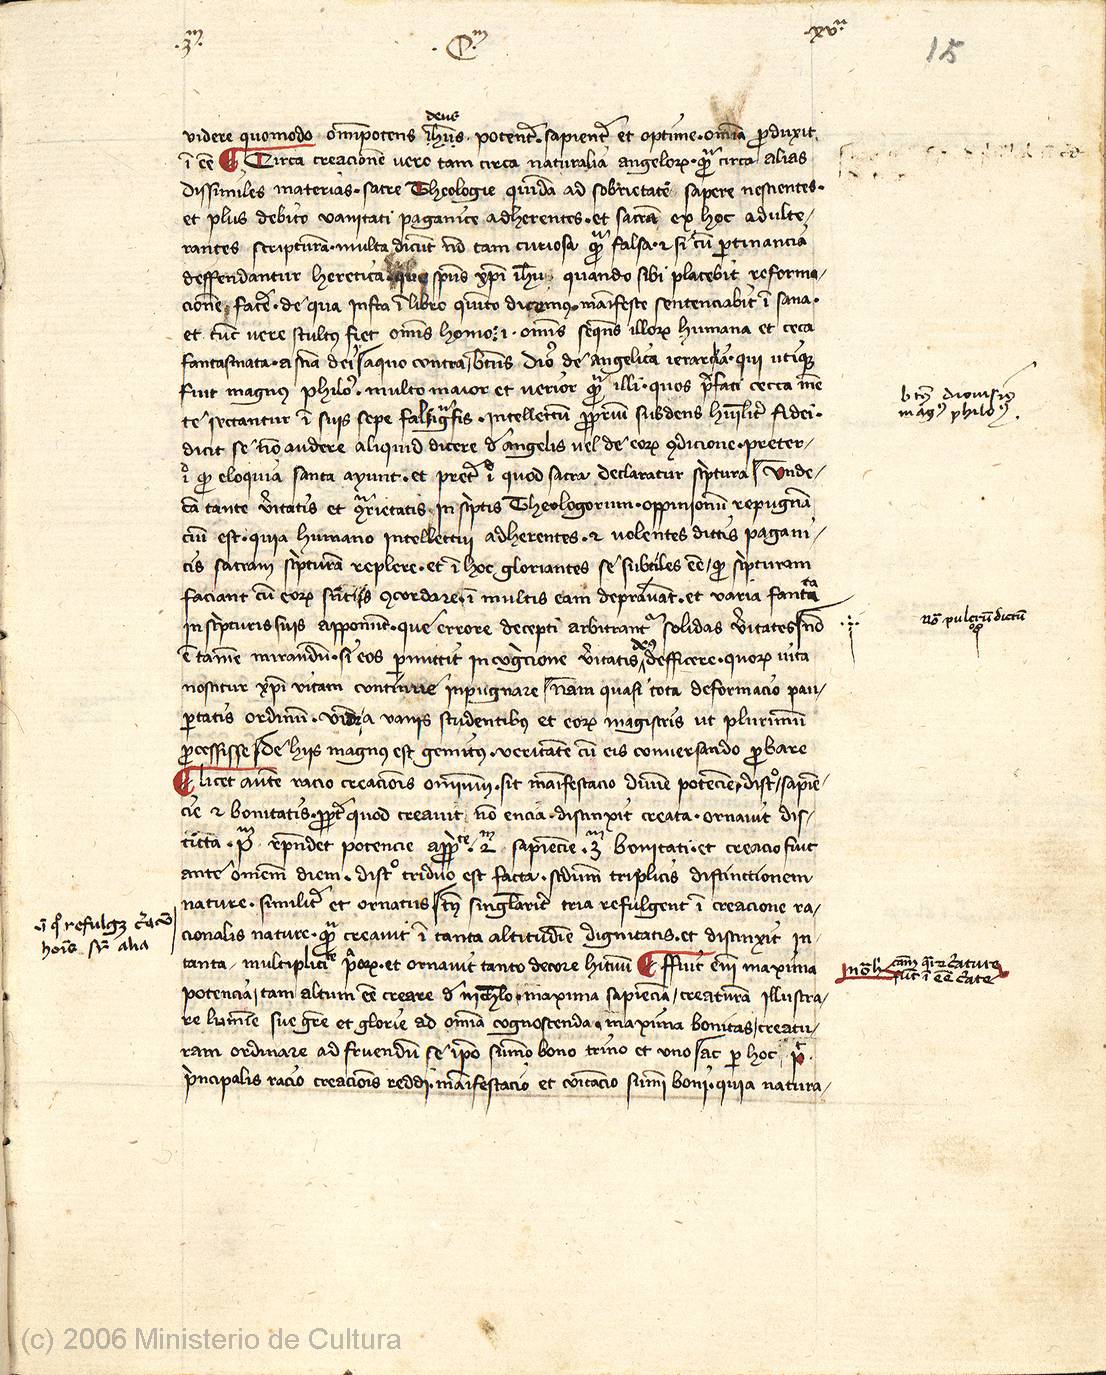 .3m. .Cm. .xvii. 15
deus
videre quomodo omnipotens ihus potenter. sapienter et optime. omnia produxit
in esse Circa creacionem vero tam circa naturalia angelorum. quam circa alias
dissimiles materias. sacre Theologie quidam ad sobrietatem sapere nescientes.
et plus debito vanitati paganice adherentes. et sacram ex hoc adulte/
rantes scripturam. multa dicunt non tam curiosa quam falsa. et si cum pertinancia
deffendantur heretica. que spiritus xpi ihu quando sibi placebit reforma/
cionem facere. de qua infra in libro quinto dicemus. manifeste sentenciabit in sana.
et tunc vere stultus fiet omnis homo. i. omnis sequens illorum humana et ceca
fantasmata. a sciencia dei aquo contra beatus dio. de angelica ierarchia. qui utique
fuit magnus philosophus. multo maior et verior quam illi. quos prefati cecca men
te sectantur in suis sepe falsigrafis. intellectum proprium subdens humiliter fidei.
dicit se non audere aliquid dicere de angelis vel de eorum condicione. preter/
id quod eloquia santa ayunt. et preter id quod sacra declaratur scriptura Unde/
cam tante veritatis et contrarietatis. in scriptis Theologorum. oppinionum repugnan
cium est. quia humano intellectui adherentes. et volentes dictis pagani/
cis sacram scripturam replere. et in hoc gloriantes se subtiles esse/ quod scripturam
faciant cum eorum scientiis concordare. in multis eam depravant. et varia fantasmata
in scripturis suis apponunt. que errore decepti arbitrantur solidas veritates non
est tamen mirandum. si eos permittit in cognicione veritatis deus defficere. quorum vita
noscitur xpi vitam continue inpugnare nam quasi tota deformacio pau/
pertatis ordinum. videtur a vanis studentibus et eorum magistris ut plurimum
processisse de hiis magnus est gemitus. veritatem cum eis conversando probare
licet autem racio creacionis omnium. sit manifestacio divine potencie, distinctio/ sapien
cie et bonitatis. propter quod creavit non encia. distinxit creata. ornavit dis/
tincta. primum respondet potencie appropriate. 2m sapiencie. 3m bonitati. et creacio fuit
ante omnem diem. distinctio triduo est facta. secundum triplicis distinctionem
nature. similiter et ornatus tamen singulariter tria refulgent in creacione ra/
cionalis nature. quam creavit in tanta altitudine dignitatis. et distinxit in
tanta multiplicitate priorum. et ornavit tanto decore habituum Fuit enim maxima
potencia, tam altum esse creare de nichilo. maxima sapiencia, creaturam illustra/
re lumine sue gracie et glorie ad omnia cognoscenda. maxima bonitas, creatu/
ram ordinare ad fruendum se ipso summo bono trino et uno ac per hoc, pot.
principalis racio creacionis reddi. manifestacio et communicacio summi boni. quia natura/
beatus dionisius
magnus philosophus.
nota pulcrum dictum
in quo refulget creacio
hominis super alia
nota hic causam quare creature
sunt in esse create
(c) 2006 Ministerio de Cultura